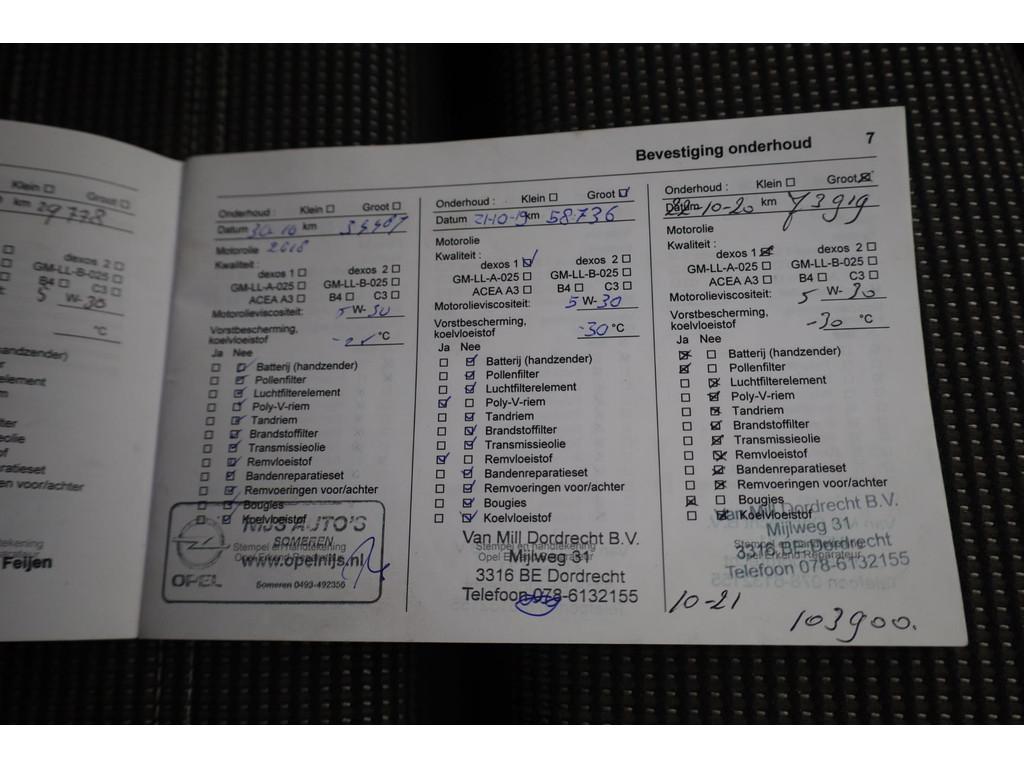 Klein ☐ Groot ☐
km 29778
dexos 2 ☐
GM-LL-B-025 ☐
B4 ☐ C3 ☐
5 W-30
°C
andzender)
element
ter
eolie
of
ratieset
en voor/achter
Feijen
Bevestiging onderhoud 7
Onderhoud : Klein ☐ Groot ☐
Datum 30-10 km
Motorolie 2018
Kwaliteit : dexos 1 ☐ dexos 2 ☐
GM-LL-A-025 ☐ GM-LL-B-025 ☐
ACEA A3 ☐ B4 ☐ C3 ☐
Motorolieviscositeit: 5 W-30
Vorstbescherming,
koelvloeistof °C
Ja Nee
☐ ☑ Batterij (handzender)
☐ ☑ Pollenfilter
☐ ☑ Luchtfilterelement
☐ ☑ Poly-V-riem
☐ ☑ Tandriem
☐ ☑ Brandstoffilter
☐ ☑ Transmissieolie
☐ ☑ Remvloeistof
☐ ☑ Bandenreparatieset
☐ ☑ Remvoeringen voor/achter
☐ ☑ Bougies
☐ ☑ Koelvloeistof
NIJS AUTO'S
SOMEREN
Stempel en handtekening
www.opelnijs.nl
OPEL
Someren 0493-492356
Onderhoud : Klein ☐ Groot ☑
Datum 21-10-19 km 58736
Motorolie
Kwaliteit : dexos 1 ☑ dexos 2 ☐
GM-LL-A-025 ☐ GM-LL-B-025 ☐
ACEA A3 ☐ B4 ☐ C3 ☐
Motorolieviscositeit: 5 W-30
Vorstbescherming,
koelvloeistof -30 °C
Ja Nee
☐ ☑ Batterij (handzender)
☐ ☑ Pollenfilter
☐ ☑ Luchtfilterelement
☑ ☐ Poly-V-riem
☐ ☑ Tandriem
☐ ☑ Brandstoffilter
☐ ☑ Transmissieolie
☑ ☐ Remvloeistof
☐ ☑ Bandenreparatieset
☐ ☑ Remvoeringen voor/achter
☐ ☑ Bougies
☐ ☑ Koelvloeistof
Van Mill Dordrecht B.V.
Stempel en handtekening
Opel Erkend Reparateur
Mijlweg 31
3316 BE Dordrecht
Telefoon 078-6132155
Onderhoud : Klein ☐ Groot ☒
Datum 10-20 km 73919
Motorolie
Kwaliteit : dexos 1 ☒ dexos 2 ☐
GM-LL-A-025 ☐ GM-LL-B-025 ☐
ACEA A3 ☐ B4 ☐ C3 ☐
Motorolieviscositeit: 5 W-30
Vorstbescherming,
koelvloeistof -30 °C
Ja Nee
☒ ☐ Batterij (handzender)
☒ ☐ Pollenfilter
☐ ☒ Luchtfilterelement
☐ ☒ Poly-V-riem
☐ ☒ Tandriem
☐ ☒ Brandstoffilter
☐ ☒ Transmissieolie
☐ ☒ Remvloeistof
☐ ☒ Bandenreparatieset
☐ ☒ Remvoeringen voor/achter
☒ ☐ Bougies
☐ ☒ Koelvloeistof
Van Mill Dordrecht B.V.
Mijlweg 31
Stempel en handtekening
3316 BE Dordrecht
Opel Erkend Reparateur
Telefoon 078-6132155
10-21
103900.